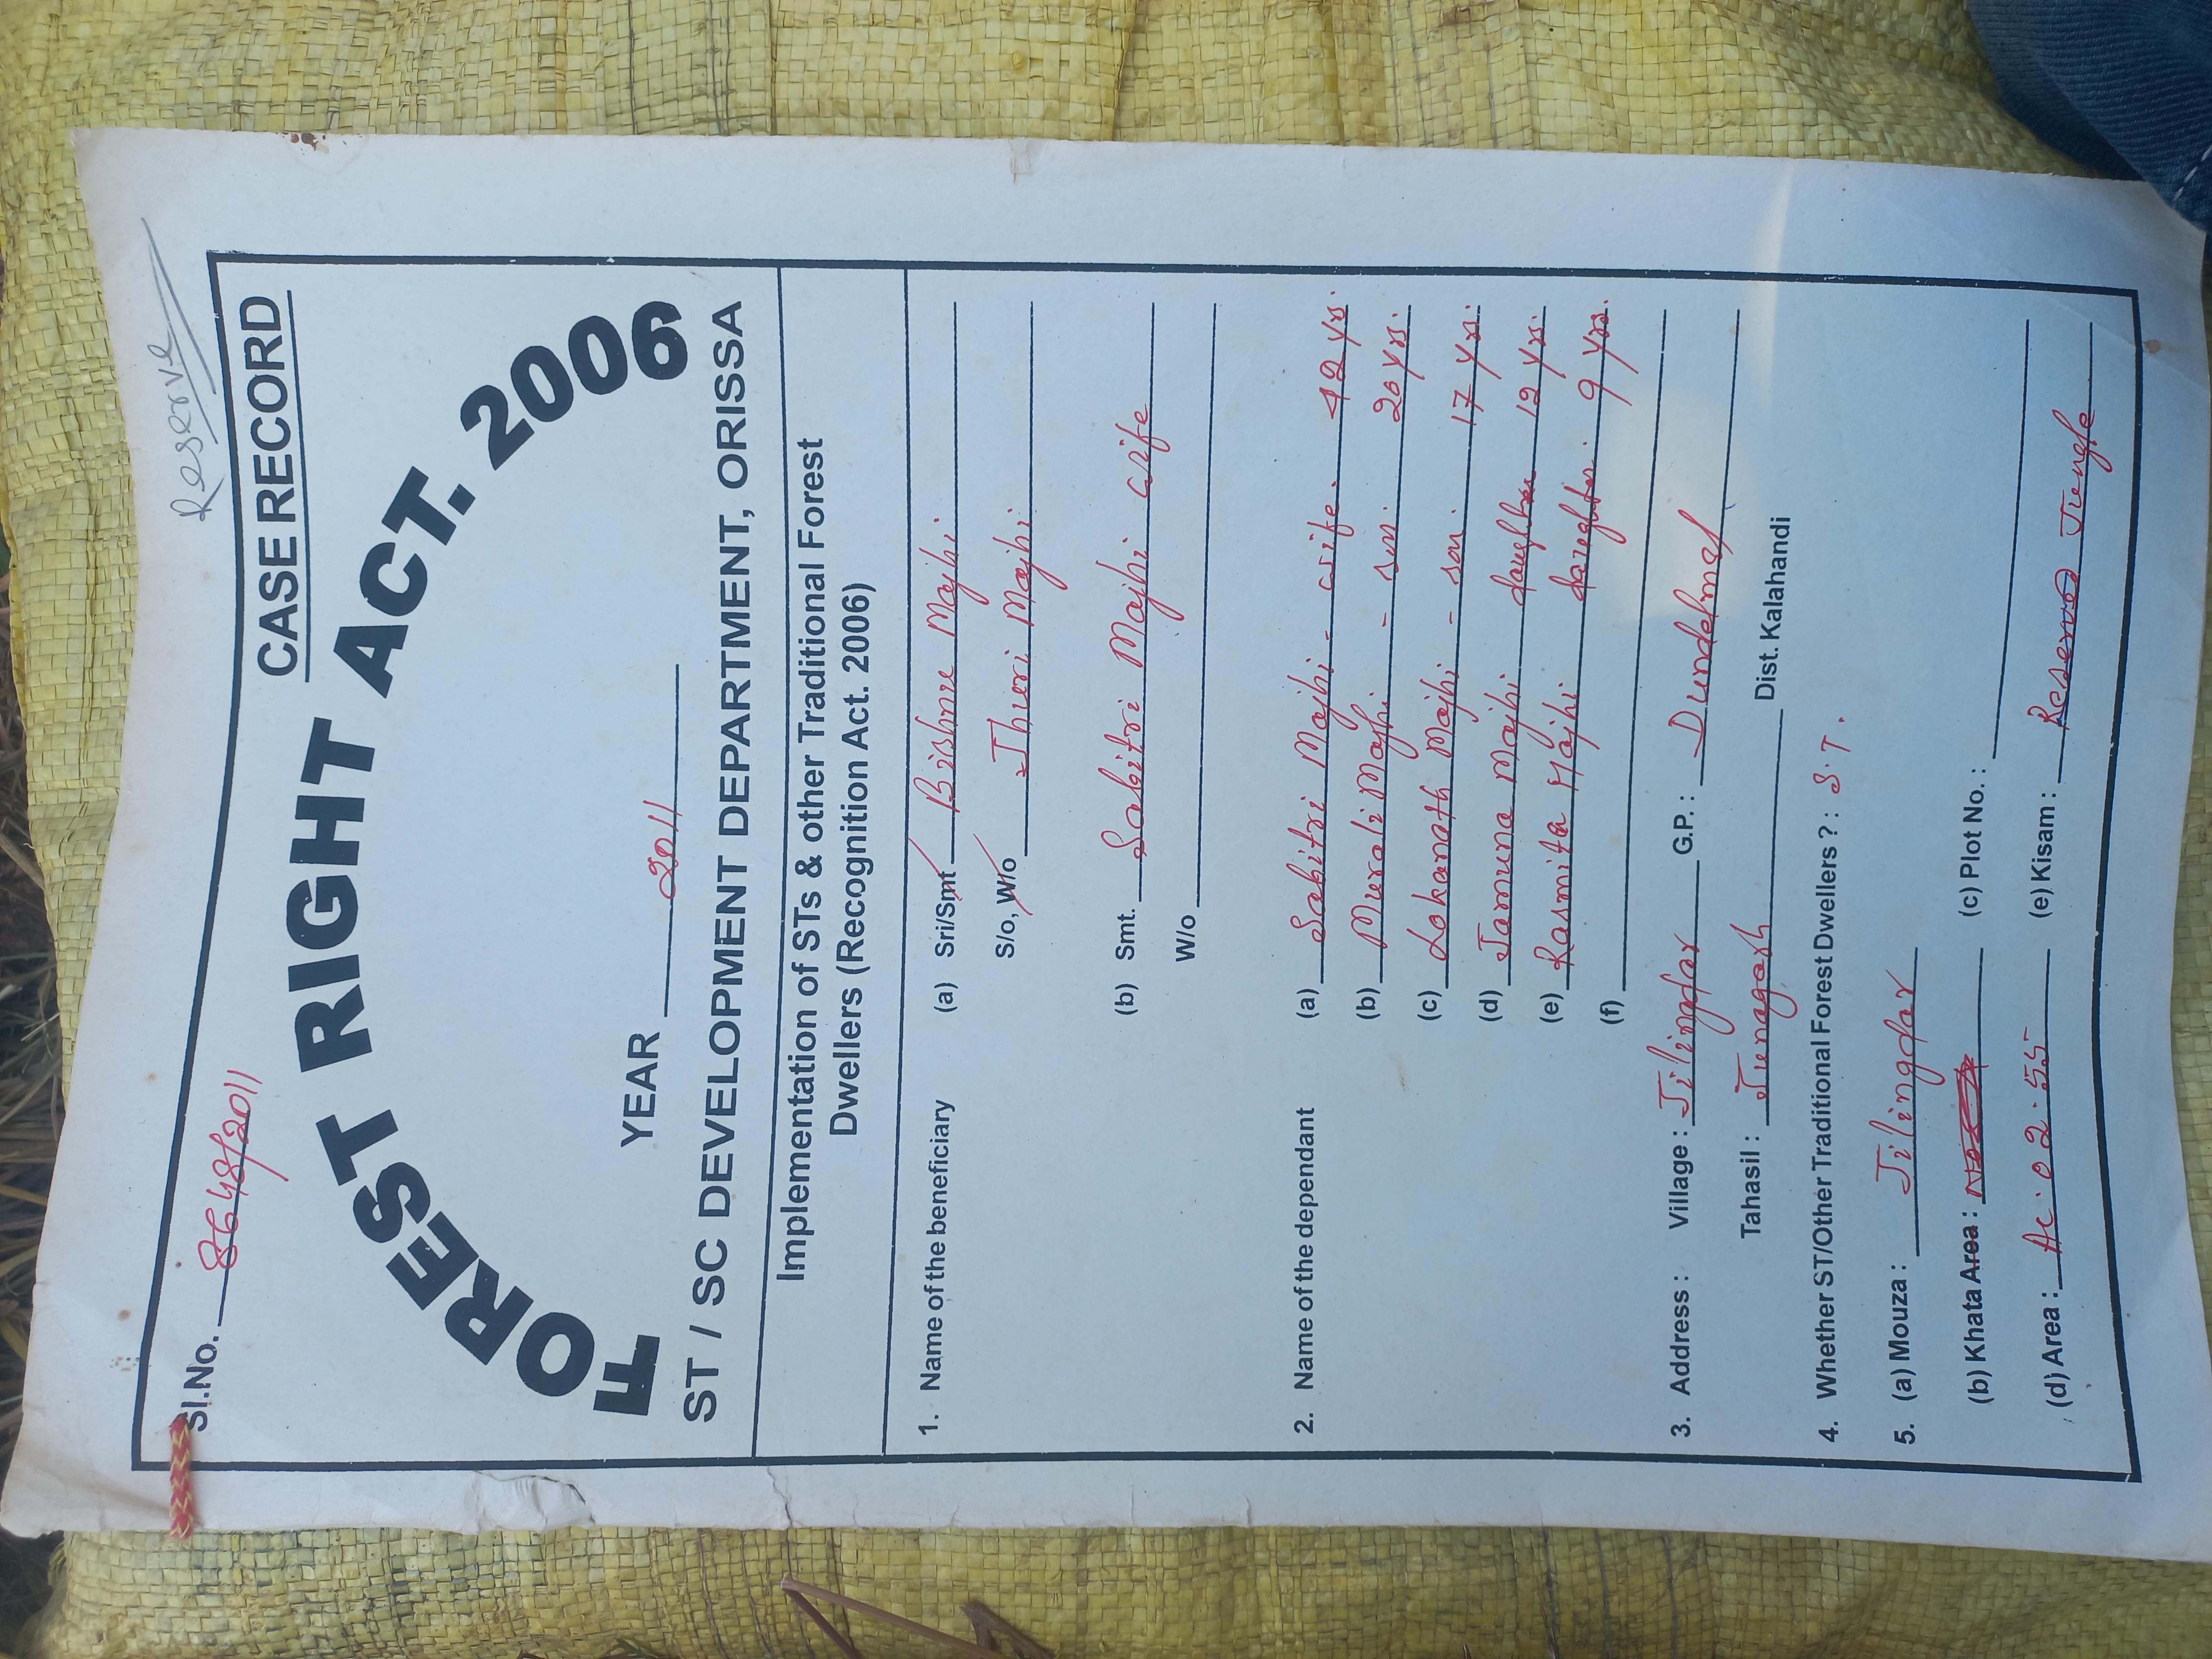 Reserve
Sl.No. 8648/2011
CASE RECORD
FOREST RIGHT ACT. 2006
YEAR 2011
ST / SC DEVELOPMENT DEPARTMENT, ORISSA
Implementation of STs & other Traditional Forest
Dwellers (Recognition Act. 2006)
1. Name of the beneficiary (a) Sri/Smt Bishnu Majhi
S/o, W/o Jhuri Majhi
(b) Smt. Sabitri Majhi wife
W/o
2. Name of the dependant (a) Sabitri Majhi - wife. 42 yrs.
(b) Murali Majhi - son. 20 yrs.
(c) Lokanath Majhi - son. 17 yrs.
(d) Jamuna Majhi daughter 12 yrs.
(e) Rasmita Majhi daughter. 9 yrs.
(f)
3. Address : Village : Jilingdar G.P. : Dundelmal
Tahasil : Junagarh Dist. Kalahandi
4. Whether ST/Other Traditional Forest Dwellers ? : S.T.
5. (a) Mouza : Jilingdar
(b) Khata Area : (c) Plot No. :
(d) Area : Ac. 02.55 (e) Kisam : Reserve Jungle